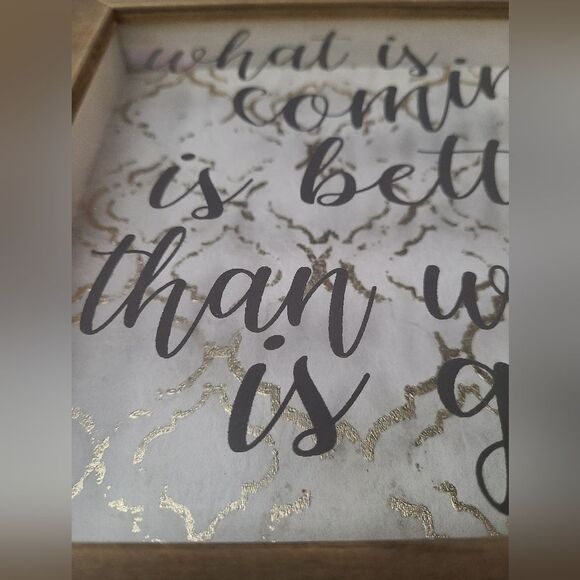 what is
comin
is bett
than w
is g